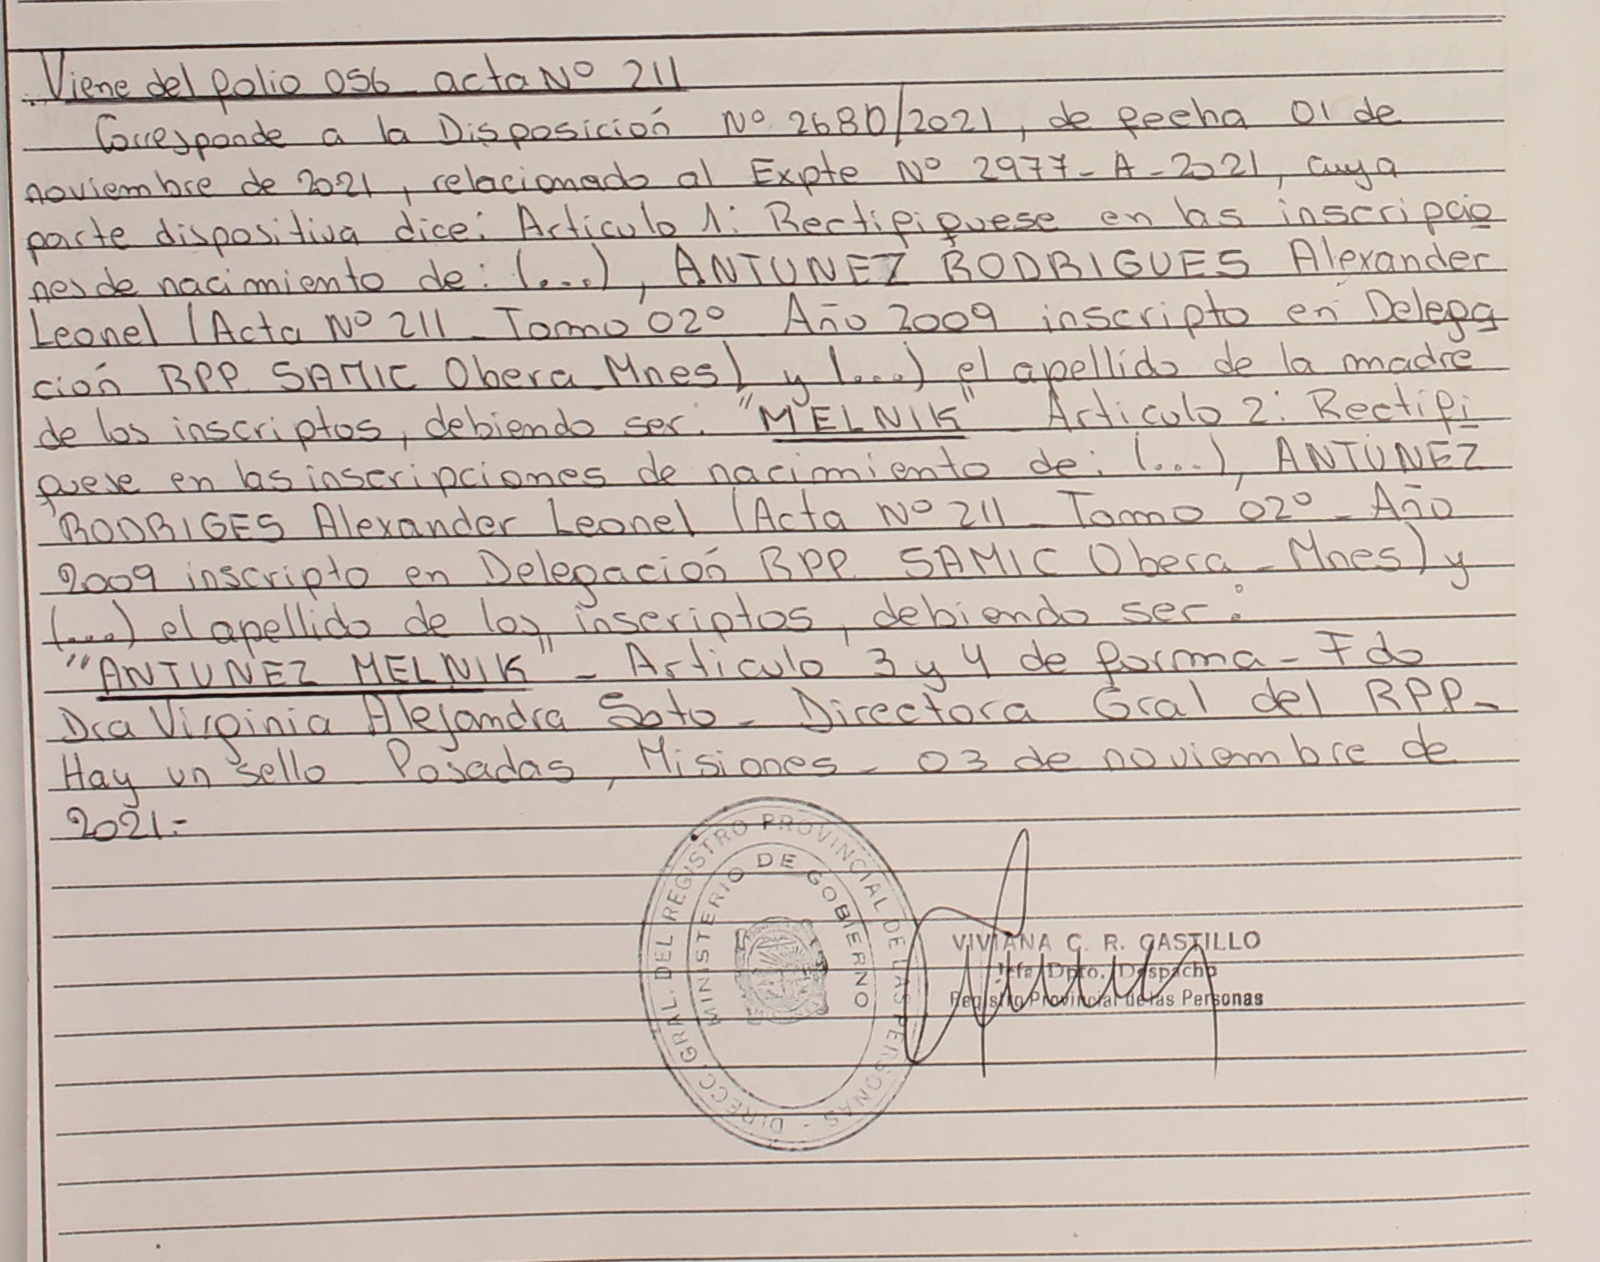 Viene del folio 056 acta Nº 211
Corresponde a la Disposición Nº 2680/2021, de fecha 01 de
noviembre de 2021, relacionado al Expte Nº 2977-A-2021, cuya
parte dispositiva dice: Articulo 1: Rectifiquese en las inscripcio
nes de nacimiento de: (...), ANTUNEZ RODRIGUES Alexander
Leonel (Acta Nº 211 - Tomo 02º Año 2009 inscripto en Delega
ción RPP. SAMIC Obera - Mnes) y (...) el apellido de la madre
de los inscriptos, debiendo ser: "MELNIK" Articulo 2: Rectifi
quese en las inscripciones de nacimiento de: (...), ANTUNEZ
RODRIGES Alexander Leonel (Acta Nº 211 - Tomo 02º - Año
2009 inscripto en Delegación RPP. SAMIC Obera - Mnes) y
(...) el apellido de los inscriptos, debiendo ser:
"ANTUNEZ MELNIK" - Articulo 3 y 4 de forma - Fdo
Dra Virginia Alejandra Soto - Directora Gral del RPP-
Hay un sello Posadas, Misiones - 03 de noviembre de
2021.-
DIRECC. GRAL. DEL REGISTRO PROVINCIAL DE LAS PERSONAS -
MINISTERIO DE GOBIERNO
VIVIANA C. R. CASTILLO
Jefa Dpto. Despacho
Registro Provincial de las Personas